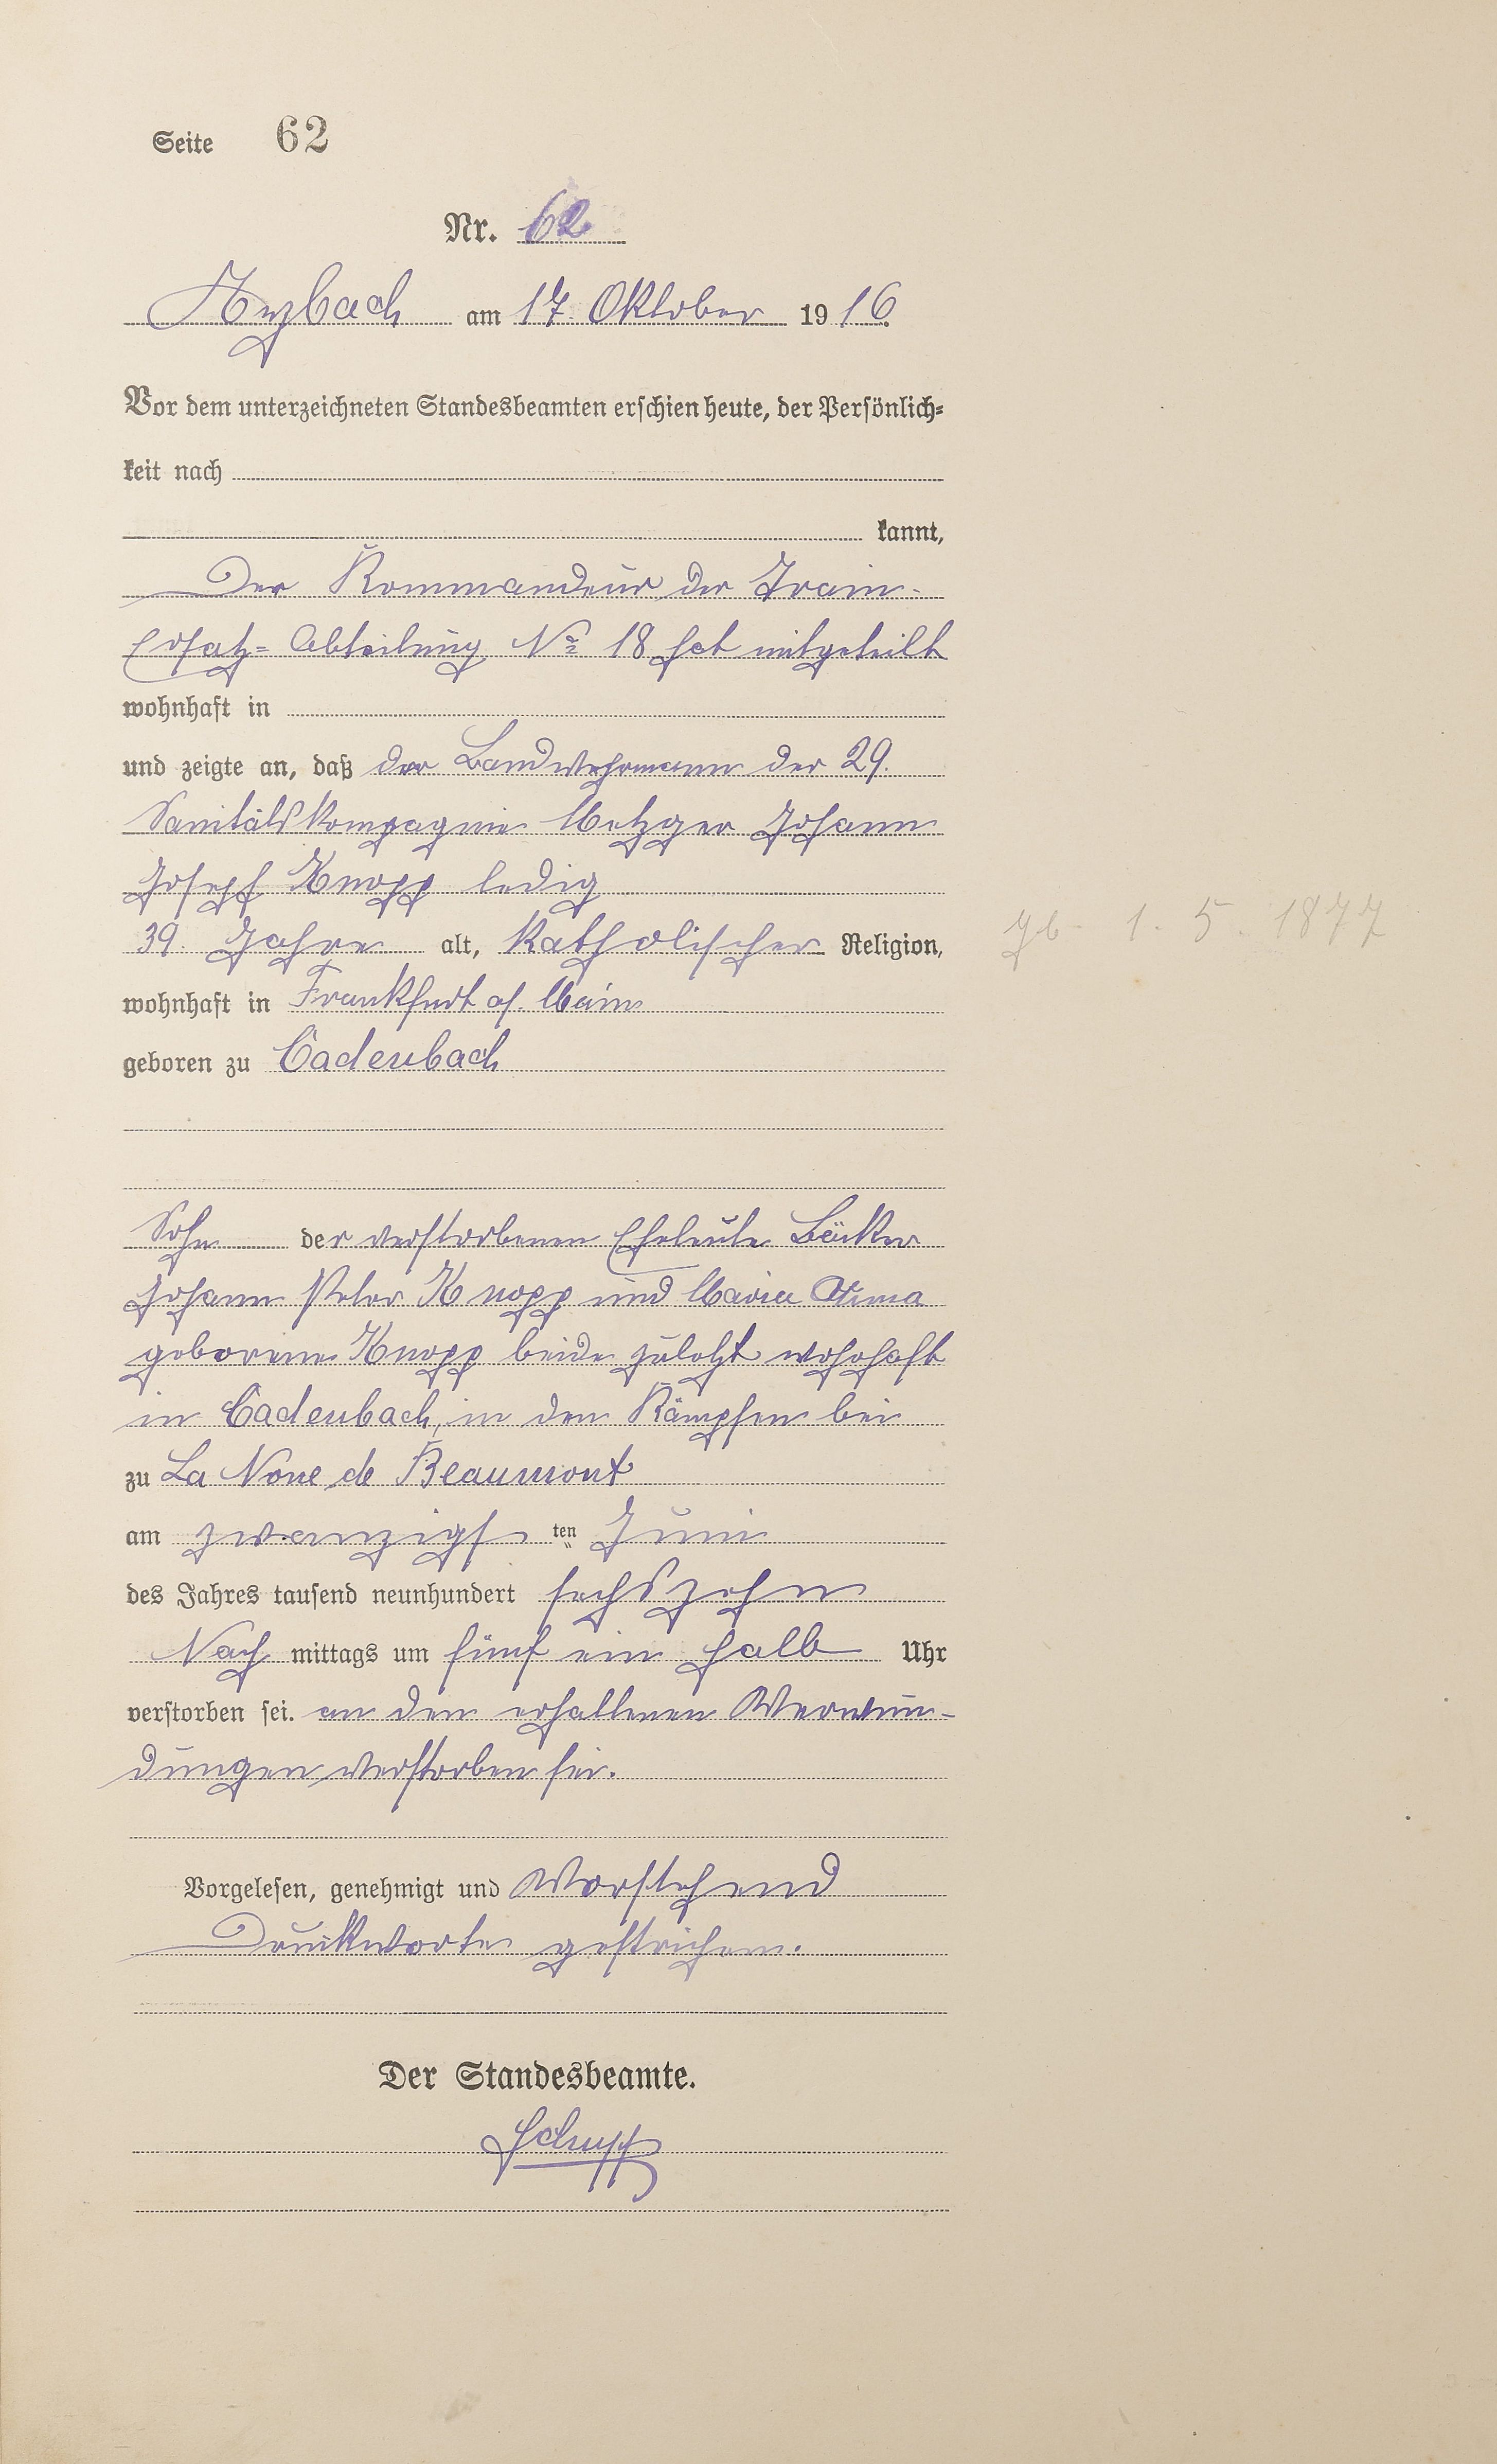 Seite 62
Nr. 62
Arzbach am 17. Oktober 1916.
Vor dem unterzeichneten Standesbeamten erschien heute, der Persönlich-
keit nach
kannt,
Der Kommandeur der Train-
Ersatz-Abteilung No 18 hat mitgeteilt
wohnhaft in
und zeigte an, daß der Landwehrmann der 29.
Sanitätskompagnie Metzger Johann
Joseph Knopp ledig
39. Jahre alt, katholischer Religion,
gb. 1. 5. 1877
wohnhaft in Frankfurt a/. Main
geboren zu Cadenbach
Sohn der verstorbenen Eheleute Bäcker
Johann Peter Knopp und Maria Anna
geborene Knopp beide zuletzt wohnhaft
in Cadenbach, in den Kämpfen bei
zu La Noue de Beaumont
am zwanzigsten Juni
des Jahres tausend neunhundert sechszehn
Nach mittags um fünf ein halb Uhr
verstorben sei. an den erhaltenen Verwun-
dungen verstorben sei.
Vorgelesen, genehmigt und Vorstehend
Druckworte gestrichen.
Der Standesbeamte.
Schupp